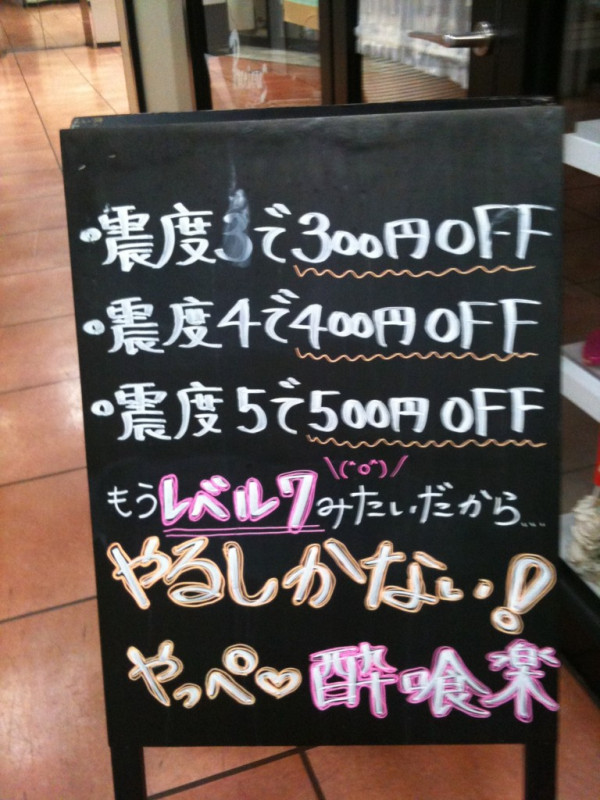 ・震度3で300円OFF
・震度4で400円OFF
・震度5で500円OFF
\(^o^)/
もうレベル7みたいだから....
やるしかない!
やっぺ♡酔喰楽